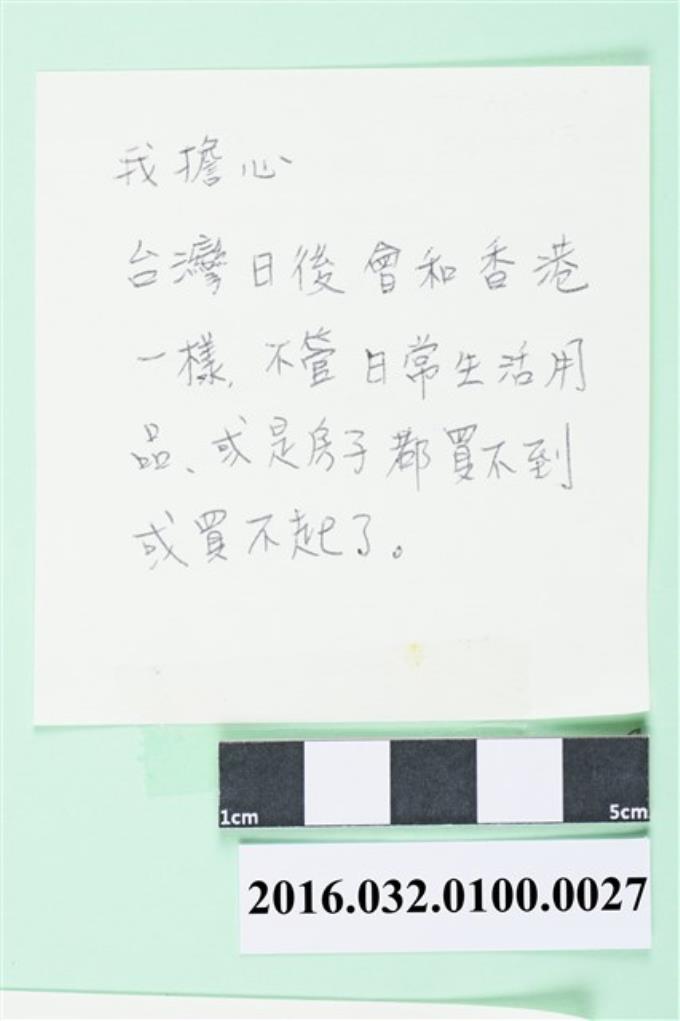 我擔心
台灣日後會和香港
一樣,不管日常生活用
品、或是房子都買不到
或買不起了。
1cm 5cm
2016.032.0100.0027